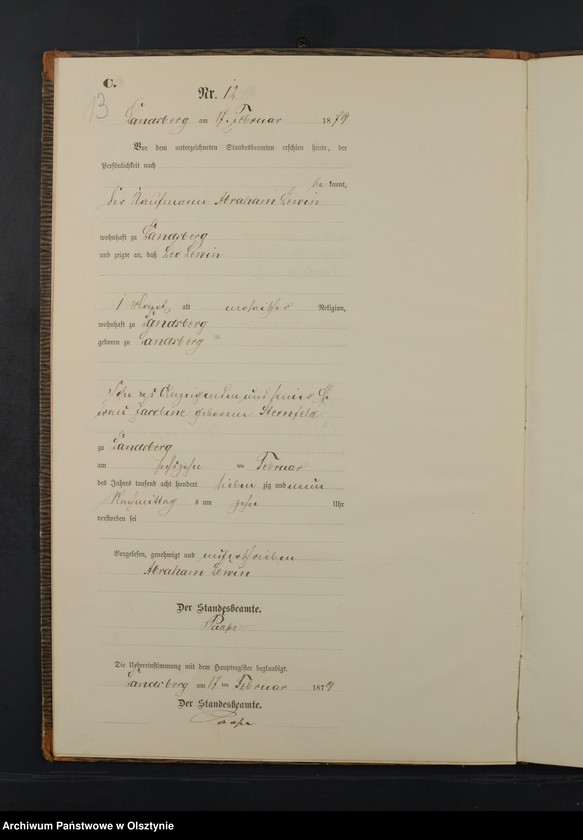 C.
13
Nr. 12
Landsberg am 17 Februar 1879
Vor dem unterzeichneten Standesbeamten erschien heute, der
Persönlichkeit nach
be kannt,
der Kaufmann Abraham Lewin
wohnhaft zu Landsberg
und zeigte an, daß Leo Lewin
1 Monat alt mosaischer Religion,
wohnhaft zu Landsberg
geboren zu Landsberg
Sohn des Anzeigenden und seiner Ehe
frau Jacobine geborenen Sternfeld
zu Landsberg
am sechszehn ten Februar
des Jahres tausend acht hundert sieben zig und neun
Nachmittag s um zehn Uhr
verstorben sei
Vorgelesen, genehmigt und unterschrieben
Abraham Lewin
Der Standesbeamte.
Die Uebereinstimmung mit dem Hauptregister beglaubigt.
Landsberg am 17 ten Februar 1879
Der Standesbeamte.
Archiwum Państwowe w Olsztynie